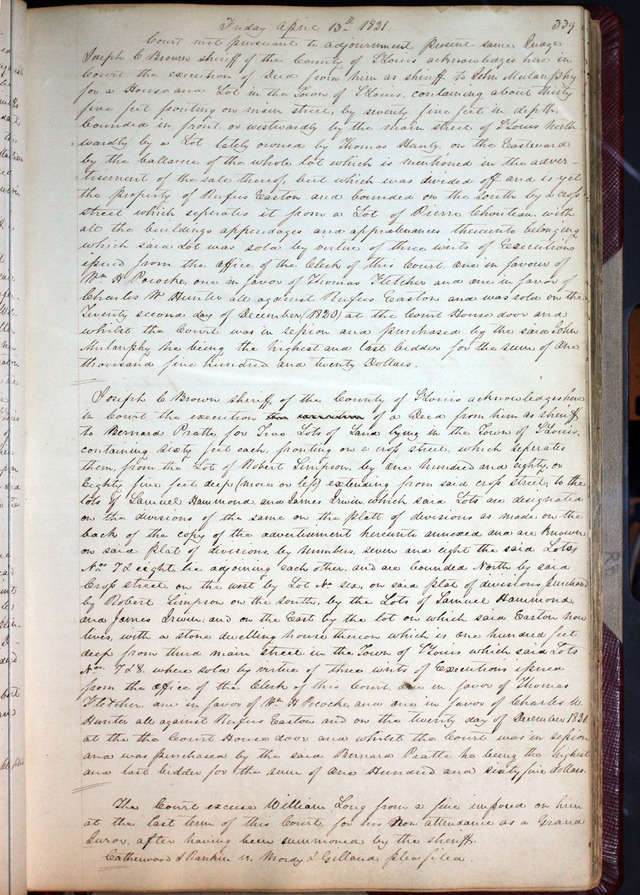 Friday April 13th 1821
339
Court met pursuant to adjournment present same Judge
Joseph C Brown sheriff of the County of St Louis acknowledges here in
Court the execution of Deed from him as sheriff to John Mulanphy
for a House and Lot in the Town of St Louis, containing about thirty
five feet fronting on main street, by seventy five feet in depth
bounded in front or westwardly by the main street of St Louis North-
wardly by a Lot lately owned by Thomas Hanly, on the Eastward
by the ballance of the whole lot which is mentioned in the adver-
tisement of the sale thereof, but which was divided off and is yet
the property of Rufus Easton and bounded on the South by a cross
street which seperates it from a Lot of Pierre Chouteau with
all the buildings appendages and appurtenances thereunto belonging
which said Lot was sold by virtue of three writs of Executions
issued from the office of the Clerk of this Court, one in favour of
Wm H Pococke, one in favor of Thomas Fletcher and one in favor of
Charles W Hunter all against Rufus Easton and was sold on the
Twenty second day of December (1820) at the Court House door and
whilst the Court was in session and purchased by the said John
Mulanphy he being the highest and last bidder for the sum of One
thousand five hundred and twenty Dollars.
Joseph C Brown sheriff of the County of St Louis acknowledges here
in Court the execution of a Deed from him as sheriff
to Bernard Pratte for Two Lots of Land lying in the Town of St Louis,
containing sixty feet each, fronting on a cross street, which seperates
them, from the Lot of Robert Simpson, by one hundred and eighty, or
Eighty five feet deep (more or less) extending from said cross street, to the
lots of Samuel Hammond, and James Irwin which said Lots are designated
on the divisions of the same on the platt of divisions as made on the
back of the copy of the advertisement hereunto annexed and are known
on said plat of divisions, by numbers, seven and eight the said Lots
Nos 7 & eight, lie adjoining each other, and are bounded North by said
Cross street, on the west by Lot No six, on said plat of divisions purchased
by Robert Simpson on the south, by the Lots of Samuel Hammond
and James Irwin, and on the East by the lot on which said Easton now
lives, with a stone dwelling house thereon which is one hundred feet
deep from third main street in the Town of St Louis which said Lots
Nos 7 & 8. where sold by virtue of three writs of Executions issued
from the office of the Clerk of this Court, one in favor of Thomas
Fletcher one in favor of Wm H Pococke and one in favor of Charles W.
Hunter all against Rufus Easton and on the twenty day of December 1820
at the the Court House door and whilst the Court was in session
and was purchased by the said Bernard Pratte he being the highest
and last bidder for the sum of One Hundred and sixty five Dollars.
The Court excuse William Long from a fine imposed on him
at the last term of this Court, for his Non attendance as a Grand
Juror, after having been summoned by the sheriff.
Catherwood & Rankin vs. Moody &